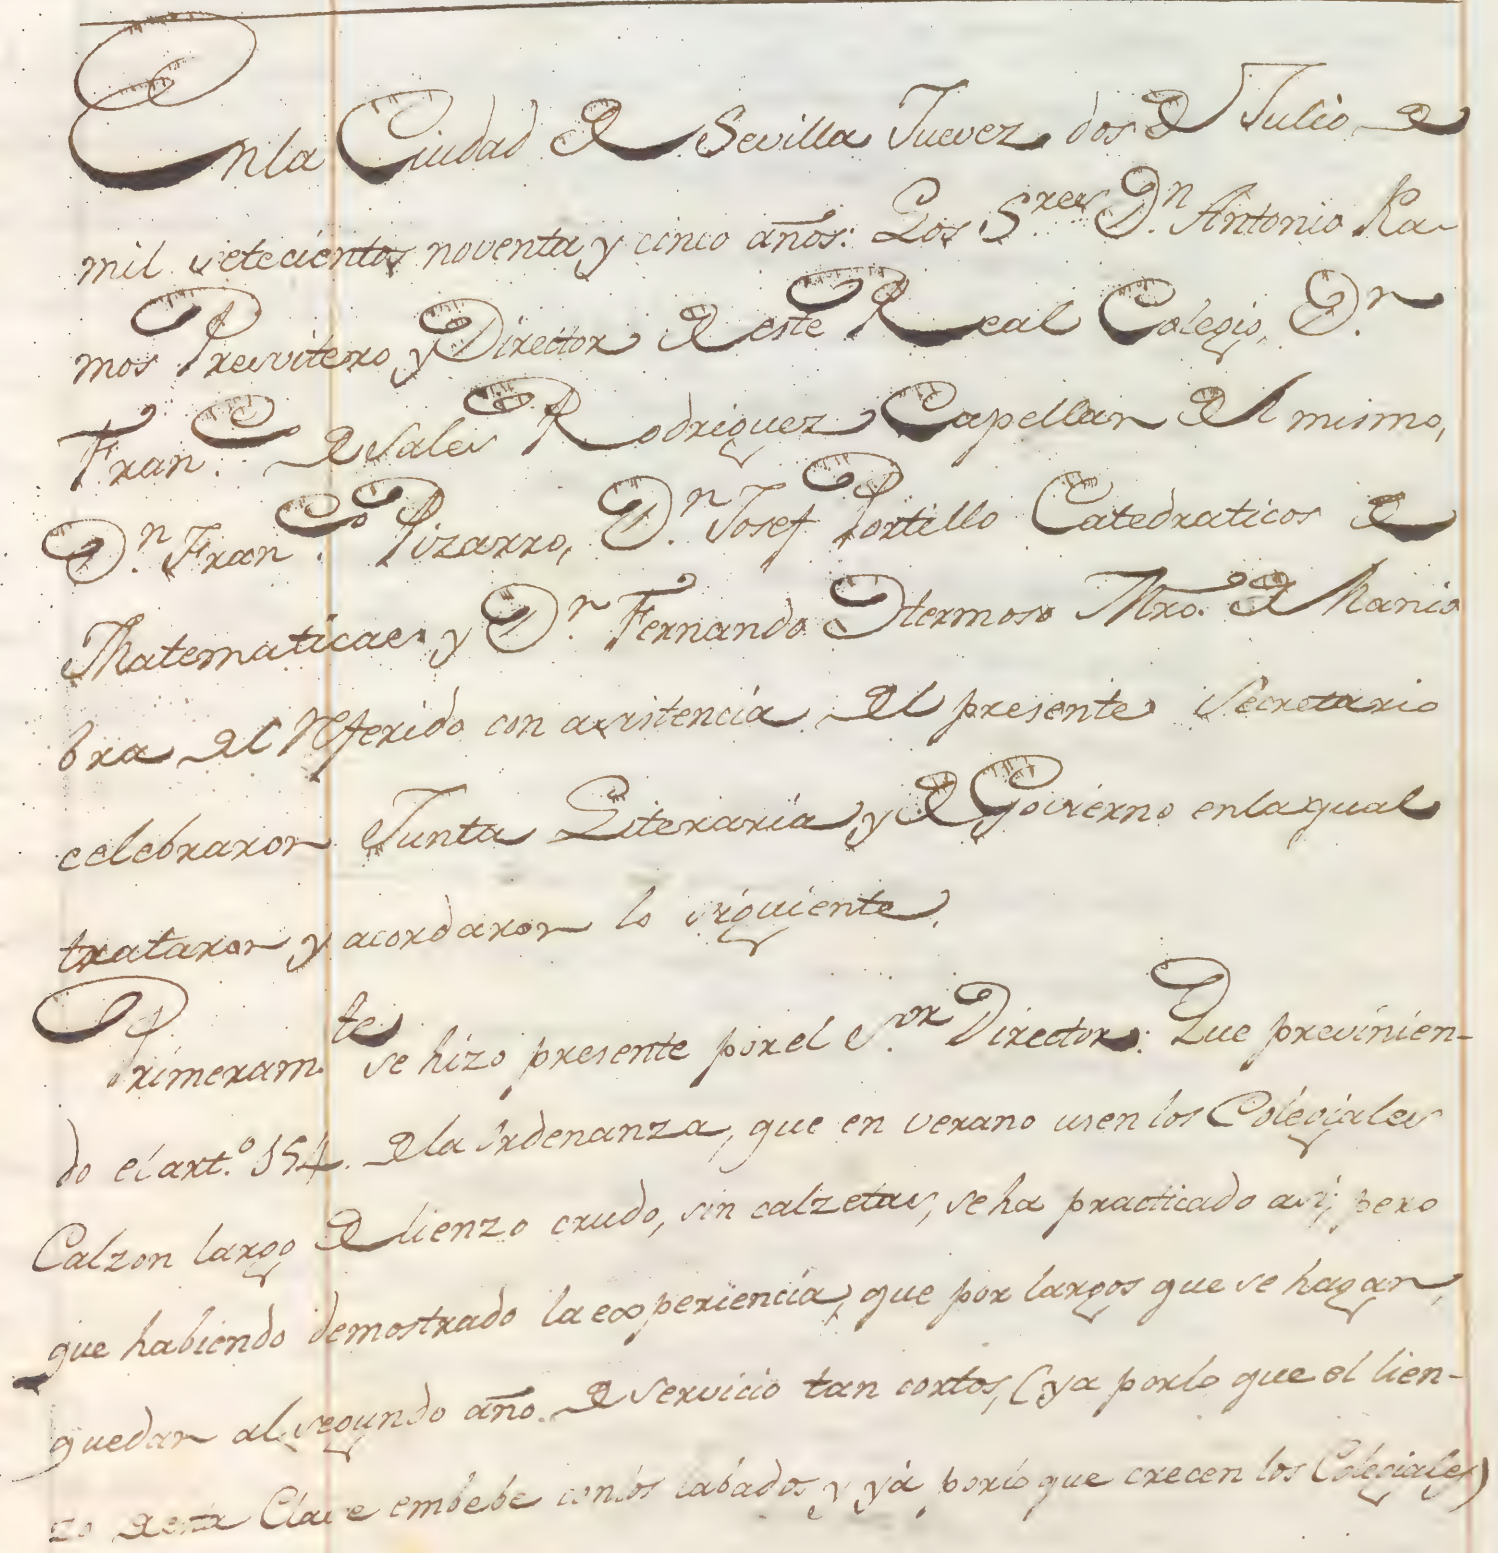 En la Ciudad de Sevilla Juevez dos de Julio de
mil setecientos noventa y cinco años: Los S.res D.n Antonio Ra-
mos Presvitero y Director de este Real Colegio, D.n
Fran.co de Sales Rodriguez Capellan del mismo,
D.n Fran.co Pizarro, D.n Josef Portillo Catedraticos de
Matematicas y D.n Fernando Hermoso Mro. de Manio
bra del Referido con asistencia del presente Secretario
celebraron Junta Literaria y de Govierno enlaqual
trataron y acordaron lo siguiente.
Primeram.te se hizo presente por el S.or Director: Que previnien-
do el art.o 154. de la Ordenanza, que en verano usen los Colegiales
Calzon largo de lienzo crudo, sin calzetas, se ha practicado asi; pero
que habiendo demostrado la experiencia, que por largos que se hagan,
quedan al segundo año de servicio tan cortos, (ya porlo que el lien-
zo de esta Clase embebe con los labados y yá porlo que crecen los Colegiales)